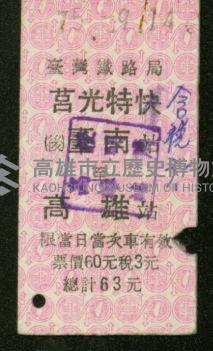 75. 9. 14.
臺灣鐵路局
莒光特快
含稅
(後)臺南站
高雄市立歷史博物館
KAOHSIUNG MUSEUM OF HISTORY
高雄站
限當日當次車有效
票價60元稅3元
總計63元